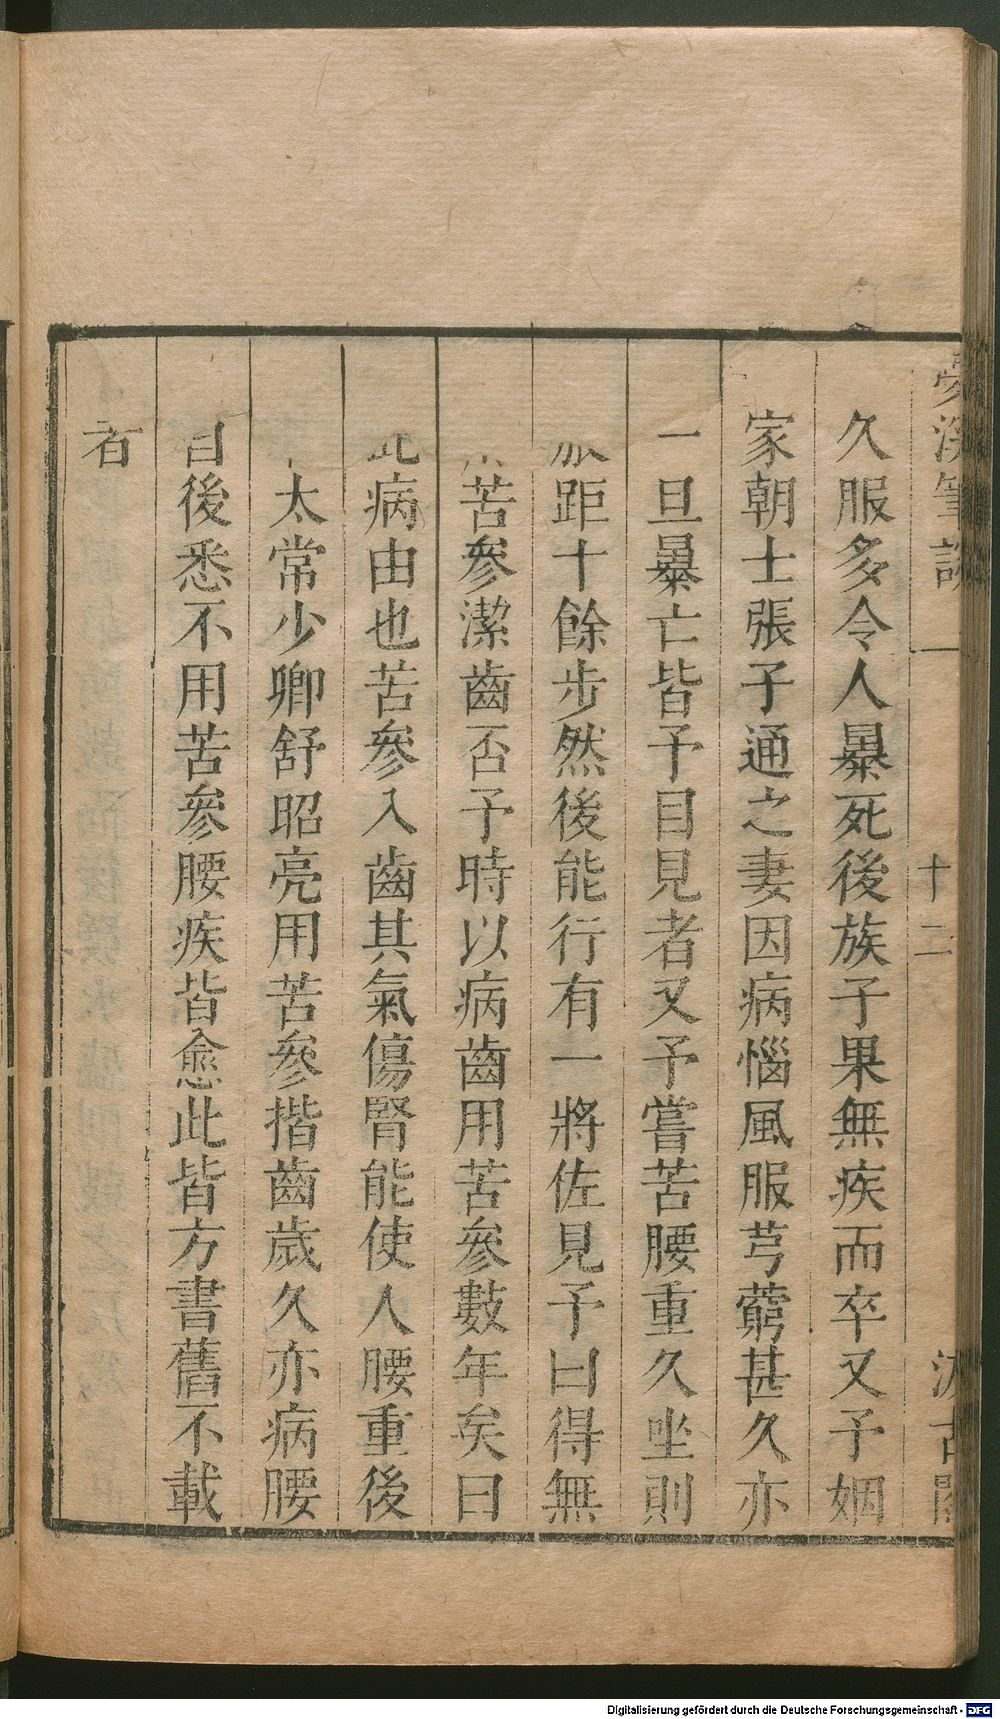 夢溪筆談 一 十二 汲古閣
久服多令人暴死後族子果無疾而卒又予姻
家朝士張子通之妻因病惱風服芎藭甚久亦
一旦暴亡皆予目見者又予嘗苦腰重久坐則
旅距十餘步然後能行有一將佐見予曰得無
苦參潔齒否予時以病齒用苦參數年矣曰
此病由也苦參入齒其氣傷腎能使人腰重後
太常少卿舒昭亮用苦參揩齒歲久亦病腰
自後悉不用苦參腰疾皆愈此皆方書舊不載
者
Digitalisierung gefördert durch die Deutsche Forschungsgemeinschaft - DFG